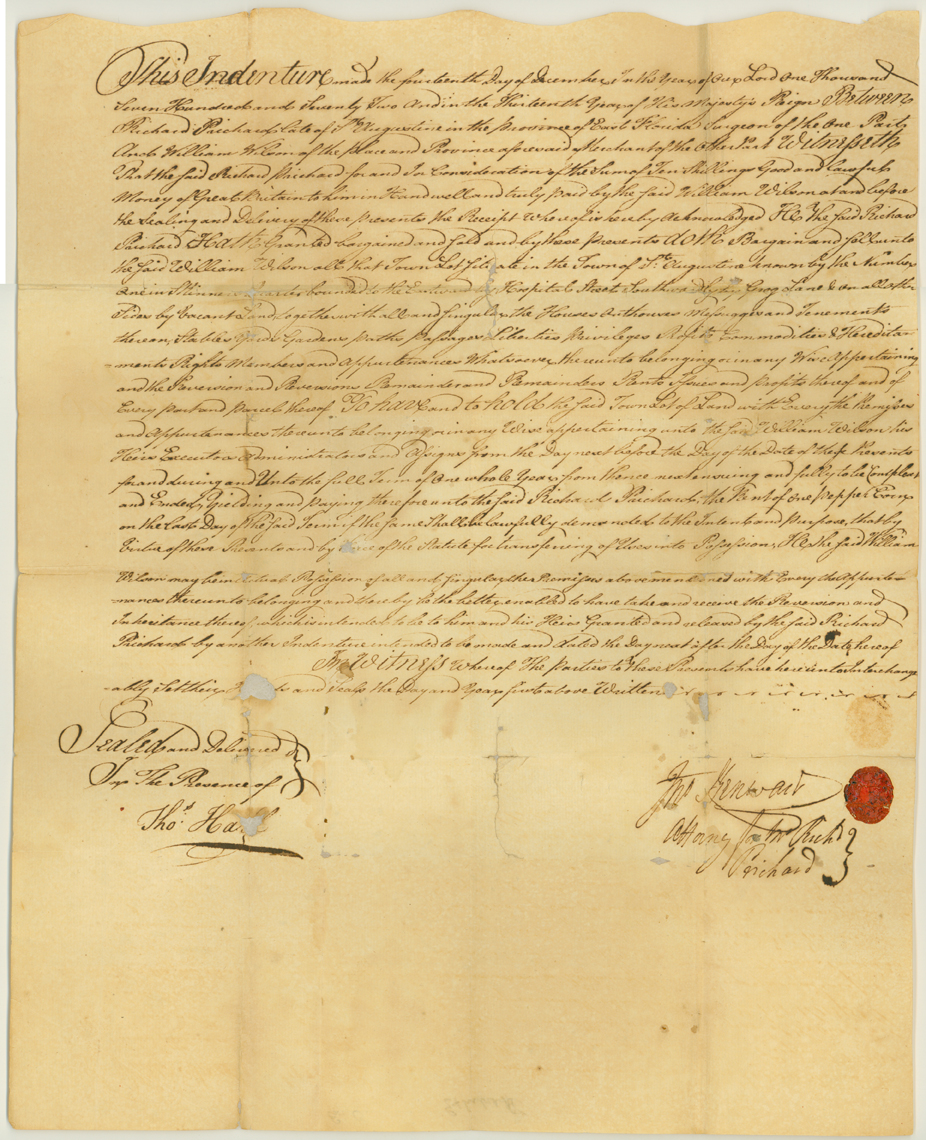 This Indenture made the fourteenth Day of December In the Year of Our Lord One Thousand
Seven Hundred and Seventy Two And in the Thirteenth Year of His Majesty's Reign Between
Richard Prichard late of St. Augustine in the Province of East Florida Surgeon of the One Party
And William Wilson of the place and Province aforesaid Merchant of the Other Part Witnesseth
That the said Richard Prichard for and In Consideration of the Sum of Ten Shillings Good and Lawful
Money of Great Britain to him in Hand well and truly paid by the Said William Wilson at and before
the Sealing and Delivery of these presents the Receipt Whereof is hereby Acknowledged He the Said Richard
Prichard Hath Granted bargained and Sold and by these Presents doth Bargain and Sell unto
the Said William Wilson all that Town Lot Situate in the Town of St. Augustine known by the Number
One in Quarter bounded to the East by Hospital Street Southwardly by Grog Lane & on all other
Sides by Vacant Land together with all and Singular the Houses Outhouses Messuages and Tenements
thereon, Stables Yards Gardens paths Passages Liberties Priviledges Profits Commodities & Heredita
ments Rights Members and Appurtenances Whatsoever thereunto belonging or in any Wise Appertaining
and the Reversion and Reversions Remainder and Remainders Rents Issues and profits thereof and of
Every part and parcel thereof To have and to hold the Said Town Lot of Land with Every the Premises
and Appurtenances thereunto belonging or in any Wise appertaining unto the Said William Wilson his
Heirs Executors Administrators and Assigns from the Day next before the Day of the Date of these Presents
for and during and Unto the full Term of One whole Year from thence next ensuing and fully to be Compleat
and Ended, Yielding and Paying therefore unto the Said Richard Prichard the Rent of One Pepper Corn
on the last Day of the Said Term if the same Shall be lawfully demanded to the Intent and Purpose, that by
Virtue of these Presents and by force of the Statute for transferring of Uses into Possession, He the Said William
Wilson may be in Actual Possession of all and Singular the Premises above mentioned with Every the Appurte-
nances thereunto belonging and thereby be the better enabled to have take and receive the Reversion and
Inheritance thereof which is intended to be to him and his Heirs Granted and released by the said Richard
Prichard by another Indenture intended to be made and dated the Day next after the Day of the Date hereof
In Witness Whereof The Parties to these Presents have hereunto Interchange
ably Set their and Seals the Day and Year first above Written
Sealed and Delivered
In The Presence of
Thos. Hall
Jno Kenward
Attorney for Richd
Prichard